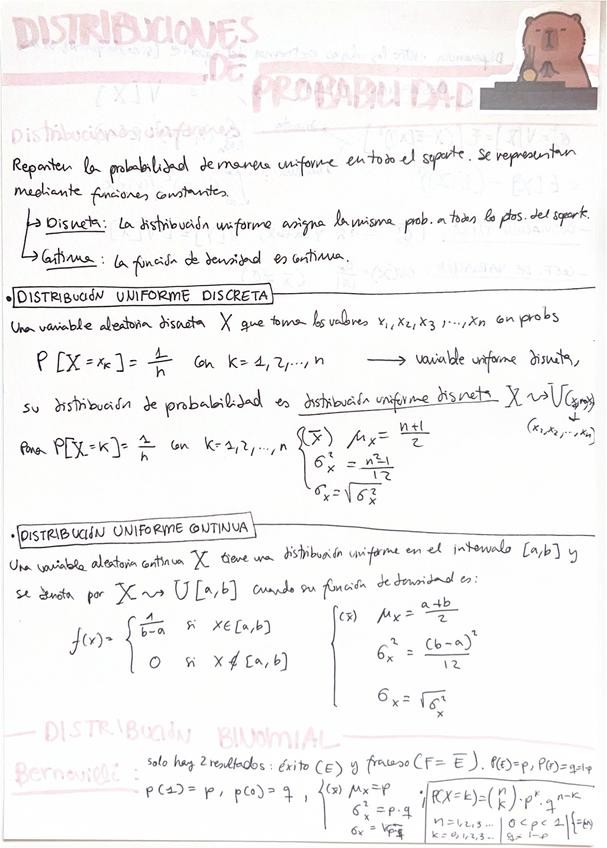 DISTRIBUCIONES
DE
PROBABILIDAD
Distribuciones uniformes
Reparten la probabilidad de manera uniforme en todo el soporte. Se representan
mediante funciones constantes.
→ Discreta: La distribución uniforme asigna la misma prob. a todos los ptos. del soporte.
→ Continua: La función de densidad es continua.
• DISTRIBUCIÓN UNIFORME DISCRETA
Una variable aleatoria discreta X que toma los valores x₁, x₂, x₃, ..., xₙ con probs
P[X=xₖ] = 1/n con k=1,2,...,n → variable uniforme discreta,
su distribución de probabilidad es distribución uniforme discreta X ⇝ U
(x₁, x₂, ..., xₙ)
Para P[X=k] = 1/n con k=1,2,...,n { (x̄) μₓ = (n+1)/2
σ²ₓ = (n²-1)/12
σₓ = √σ²ₓ
• DISTRIBUCIÓN UNIFORME CONTINUA
Una variable aleatoria continua X tiene una distribución uniforme en el intervalo [a,b] y
se denota por X ⇝ U[a,b] cuando su función de densidad es:
f(x) = { 1/(b-a) si x∈[a,b]
0 si x∉[a,b]
{ (x̄) μₓ = (a+b)/2
σ²ₓ = (b-a)²/12
σₓ = √σ²ₓ
DISTRIBUCIÓN BINOMIAL
Bernouilli: solo hay 2 resultados: éxito (E) y fracaso (F=E̅). P(E)=p, P(F)=q=1-p
p(1)=p, p(0)=q, { (x̄) μₓ=p
σ²ₓ = p·q
σₓ = √p·q
; P(X=k) = (n k)·pᵏ·qⁿ⁻ᵏ
n=1,2,3... | 0<p<1
k=0,1,2,3... | q=1-p